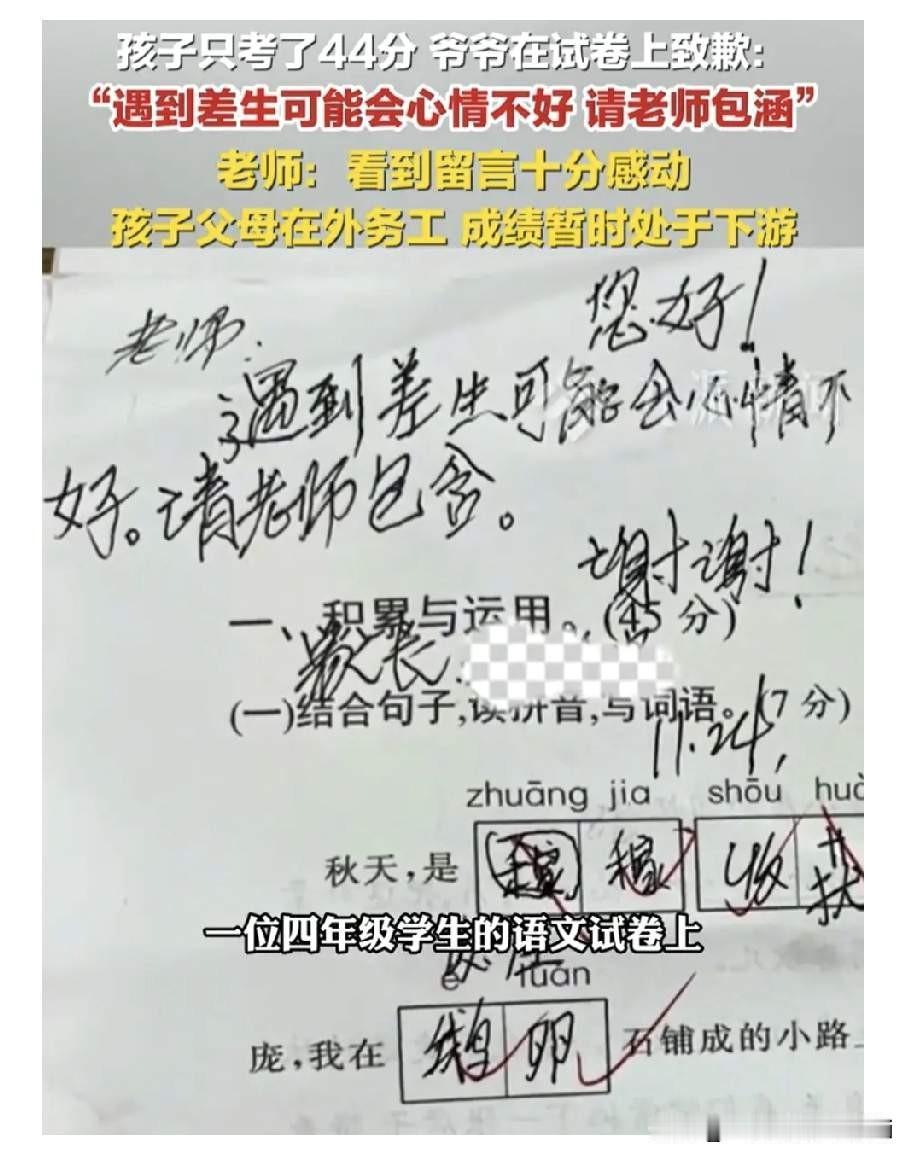 孩子只考了44分 爷爷在试卷上致歉:
“遇到差生可能会心情不好 请老师包涵”
老师：看到留言十分感动
孩子父母在外务工 成绩暂时处于下游
老师.
您好!
遇到差生可能会心情不
好。请老师包含。
谢谢!
一、积累与运用。(45分)
家长
(一)结合句子,读拼音,写词语。(7分)
11.24,
zhuāng jia shōu huò
秋天,是
收
一位四年级学生的语文试卷上
é luǎn
庞,我在 鹅卵 石铺成的小路